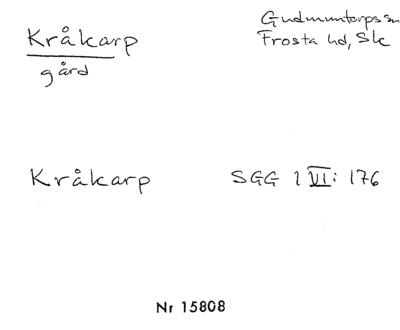 Kråkarp
gård
Gudmuntorps sn
Frosta hd, Sk
Kråkarp
SGG 1 VI: 176
Nr 15808